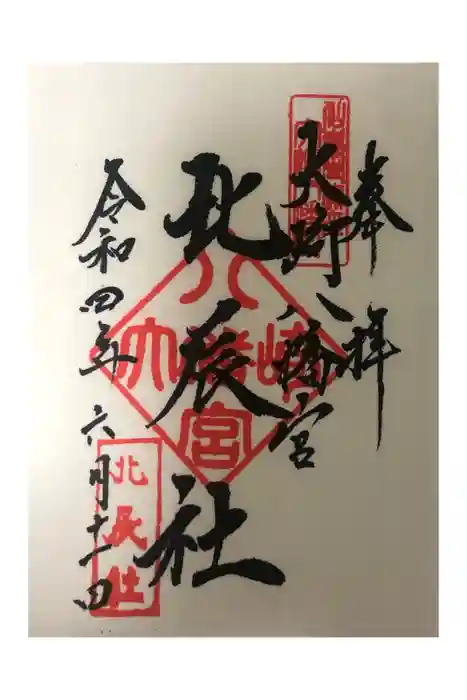 奉拝
大崎八幡宮
北辰社
令和四年六月十一日
八幡宮
大崎
北辰社